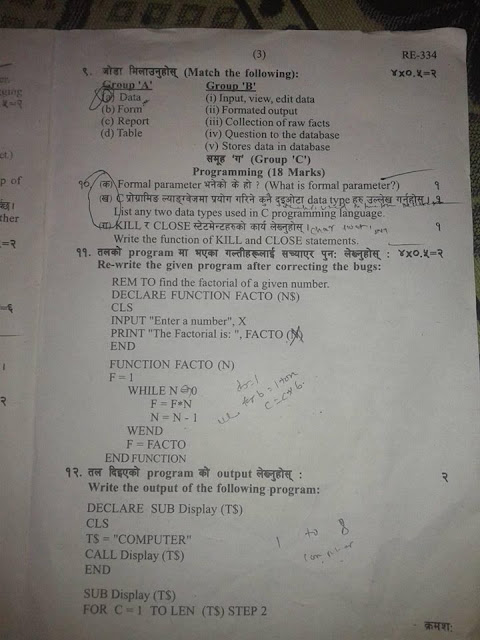 (3)
RE-334
९. जोडा मिलाउनुहोस् (Match the following): ४x०.५=२
Group 'A' Group 'B'
(a) Data (i) Input, view, edit data
(b) Form (ii) Formated output
(c) Report (iii) Collection of raw facts
(d) Table (iv) Question to the database
(v) Stores data in database
समूह 'ग' (Group 'C')
Programming (18 Marks)
१०. (क) Formal parameter भनेको के हो ? (What is formal parameter?) १
(ख) C प्रोग्रामिङ ल्याङ्ग्वेजमा प्रयोग गरिने कुनै दुइओटा data type हरु उल्लेख गर्नुहोस् । १
List any two data types used in C programming language.
(ग) KILL र CLOSE स्टेटमेन्टहरुको कार्य लेख्नुहोस् । १
Write the function of KILL and CLOSE statements.
११. तलको program मा भएका गल्तीहरूलाई सच्याएर पुन: लेख्नुहोस् : ४x०.५=२
Re-write the given program after correcting the bugs:
REM TO find the factorial of a given number.
DECLARE FUNCTION FACTO (N$)
CLS
INPUT "Enter a number", X
PRINT "The Factorial is: ", FACTO (N)
END
FUNCTION FACTO (N)
F = 1
WHILE N 0
F = F*N
N = N - 1
WEND
F = FACTO
END FUNCTION
१२. तल दिइएको program को output लेख्नुहोस् : २
Write the output of the following program:
DECLARE SUB Display (T$)
CLS
T$ = "COMPUTER"
CALL Display (T$)
END
1 to 8
SUB Display (T$)
FOR C = 1 TO LEN (T$) STEP 2
क्रमश: